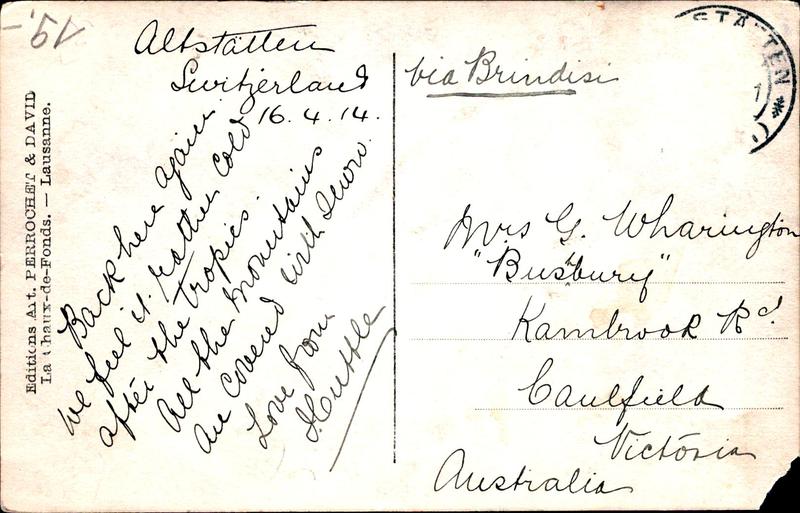 Altstätten
Switzerland
16.4.14.
Back here again
we feel it rather cold
after the tropics.
All the mountains
are covered with snow.
Love from
via Brindisi
Mrs G. Wharington
"Busbury"
Kambrook Rd.
Caulfield
Victoria
Australia
Editions Art. PERROCHET & DAVID
La Chaux-de-Fonds. — Lausanne.
STÄTTEN